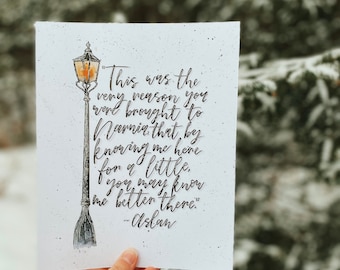 This was the
very reason you
were brought to
Narnia that, by
knowing me here
for a little,
you may know
me better there."
-Aslan